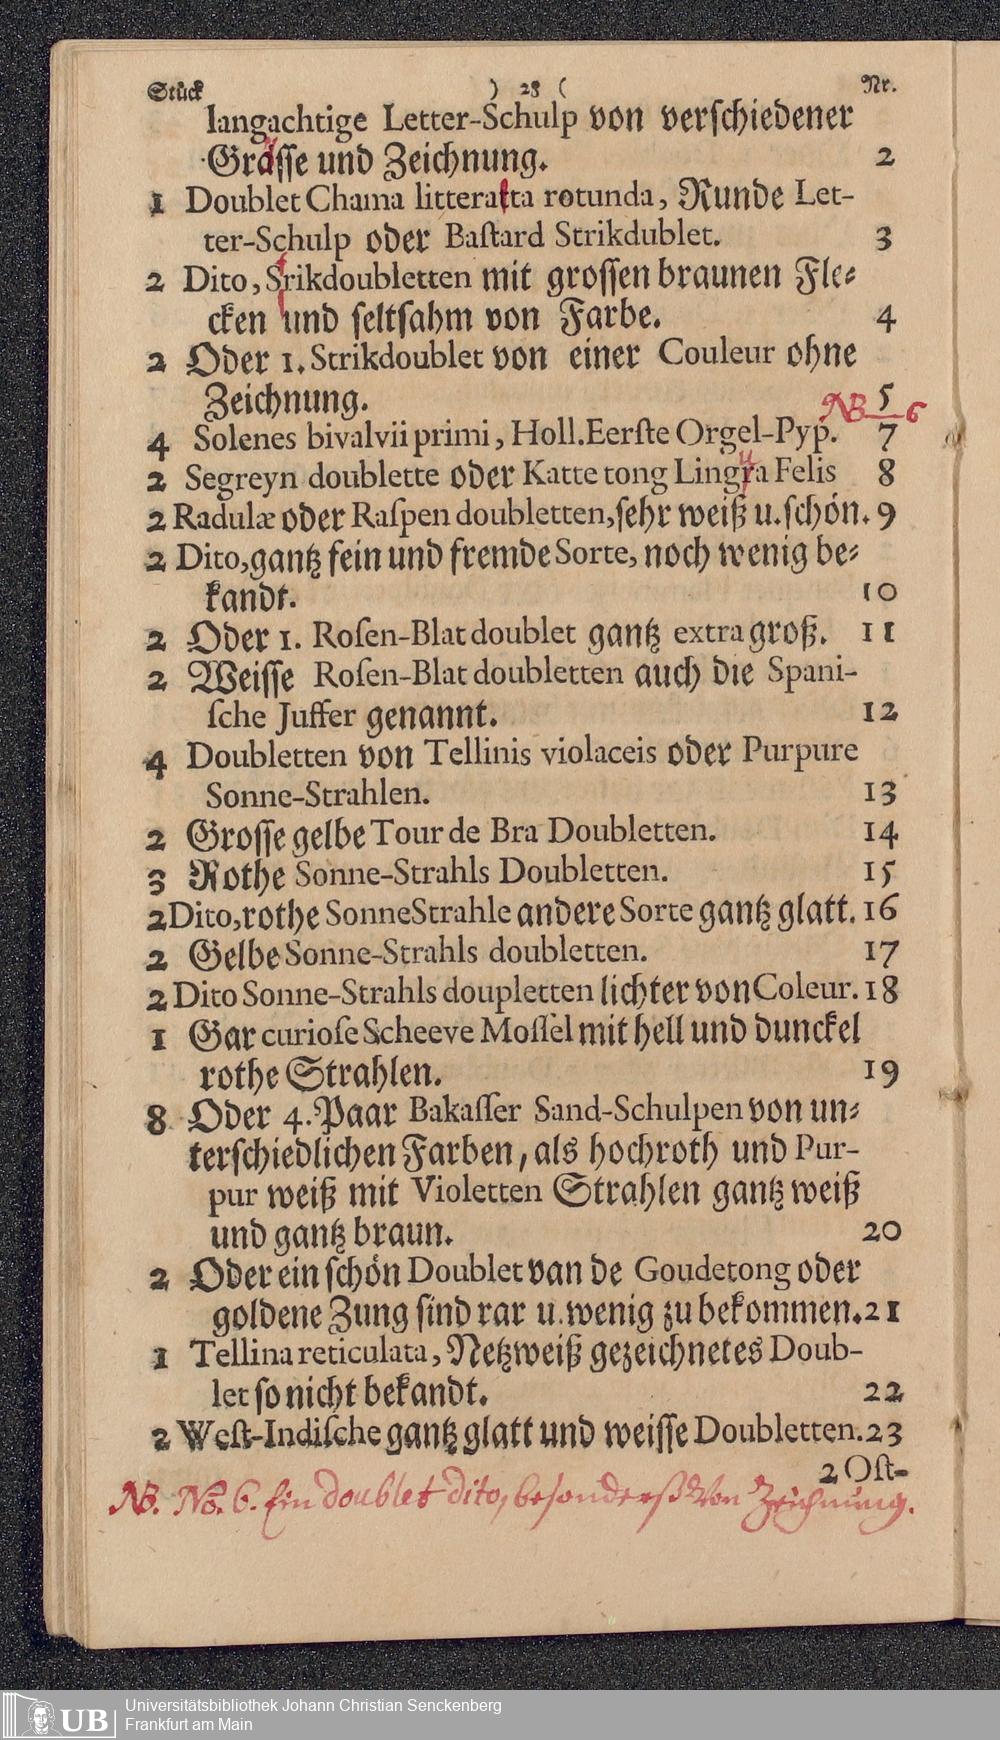 Stück ) 28 ( Nr.
langachtige Letter-Schulp von verschiedener
Grösse und Zeichnung. 2
1 Doublet Chama litteratta rotunda, Runde Let-
ter-Schulp oder Bastard Strikdublet. 3
2 Dito, Strikdoubletten mit grossen braunen Fle-
cken und seltsahm von Farbe. 4
2 Oder 1. Strikdoublet von einer Couleur ohne
Zeichnung. 5
NB 6
4 Solenes bivalvii primi, Holl. Eerste Orgel-Pyp. 7
2 Segreyn doublette oder Katte tong Lingua Felis 8
2 Radulæ oder Raspen doubletten, sehr weiß u. schön. 9
2 Dito, gantz fein und fremde Sorte, noch wenig be-
kandt. 10
2 Oder 1. Rosen-Blat doublet gantz extra groß. 11
2 Weisse Rosen-Blat doubletten auch die Spani-
sche Juffer genannt. 12
4 Doubletten von Tellinis violaceis oder Purpure
Sonne-Strahlen. 13
2 Grosse gelbe Tour de Bra Doubletten. 14
3 Rothe Sonne-Strahls Doubletten. 15
2 Dito, rothe Sonne Strahle andere Sorte gantz glatt. 16
2 Gelbe Sonne-Strahls doubletten. 17
2 Dito Sonne-Strahls doupletten lichter von Coleur. 18
1 Gar curiose Scheeve Mossel mit hell und dunckel
rothe Strahlen. 19
8 Oder 4. Paar Bakasser Sand-Schulpen von un-
terschiedlichen Farben, als hochroth und Pur-
pur weiß mit Violetten Strahlen gantz weiß
und gantz braun. 20
2 Oder ein schön Doublet van de Goudetong oder
goldene Zung sind rar u. wenig zu bekommen. 21
1 Tellina reticulata, Netzweiß gezeichnetes Doub-
let so nicht bekandt. 22
2 West-Indische gantz glatt und weisse Doubletten. 23
2 Ost-
NB. No. 6. Ein doublet dito, besonderß Von Zeichnung.
UB Universitätsbibliothek Johann Christian Senckenberg
Frankfurt am Main